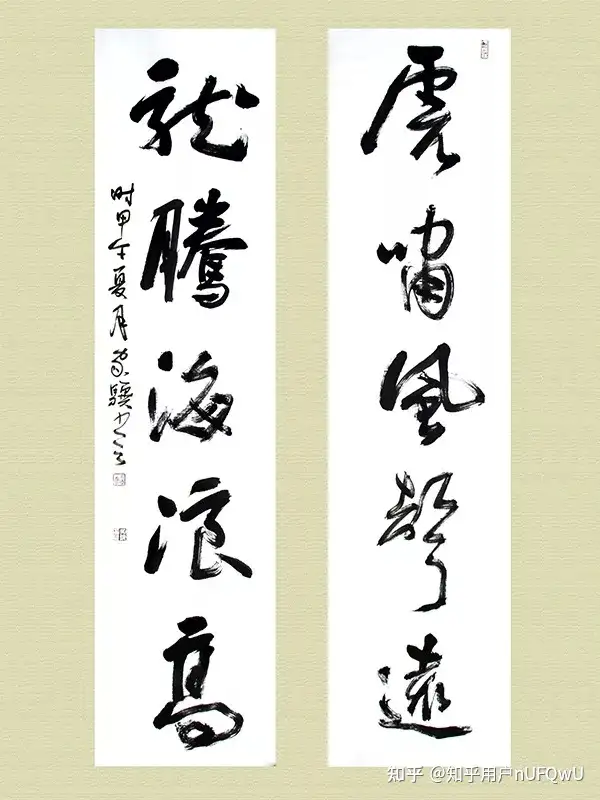 虎嘯風聲遠
龍騰海浪高
時甲午夏月家驥書
知乎 @知乎用户nUFQwU